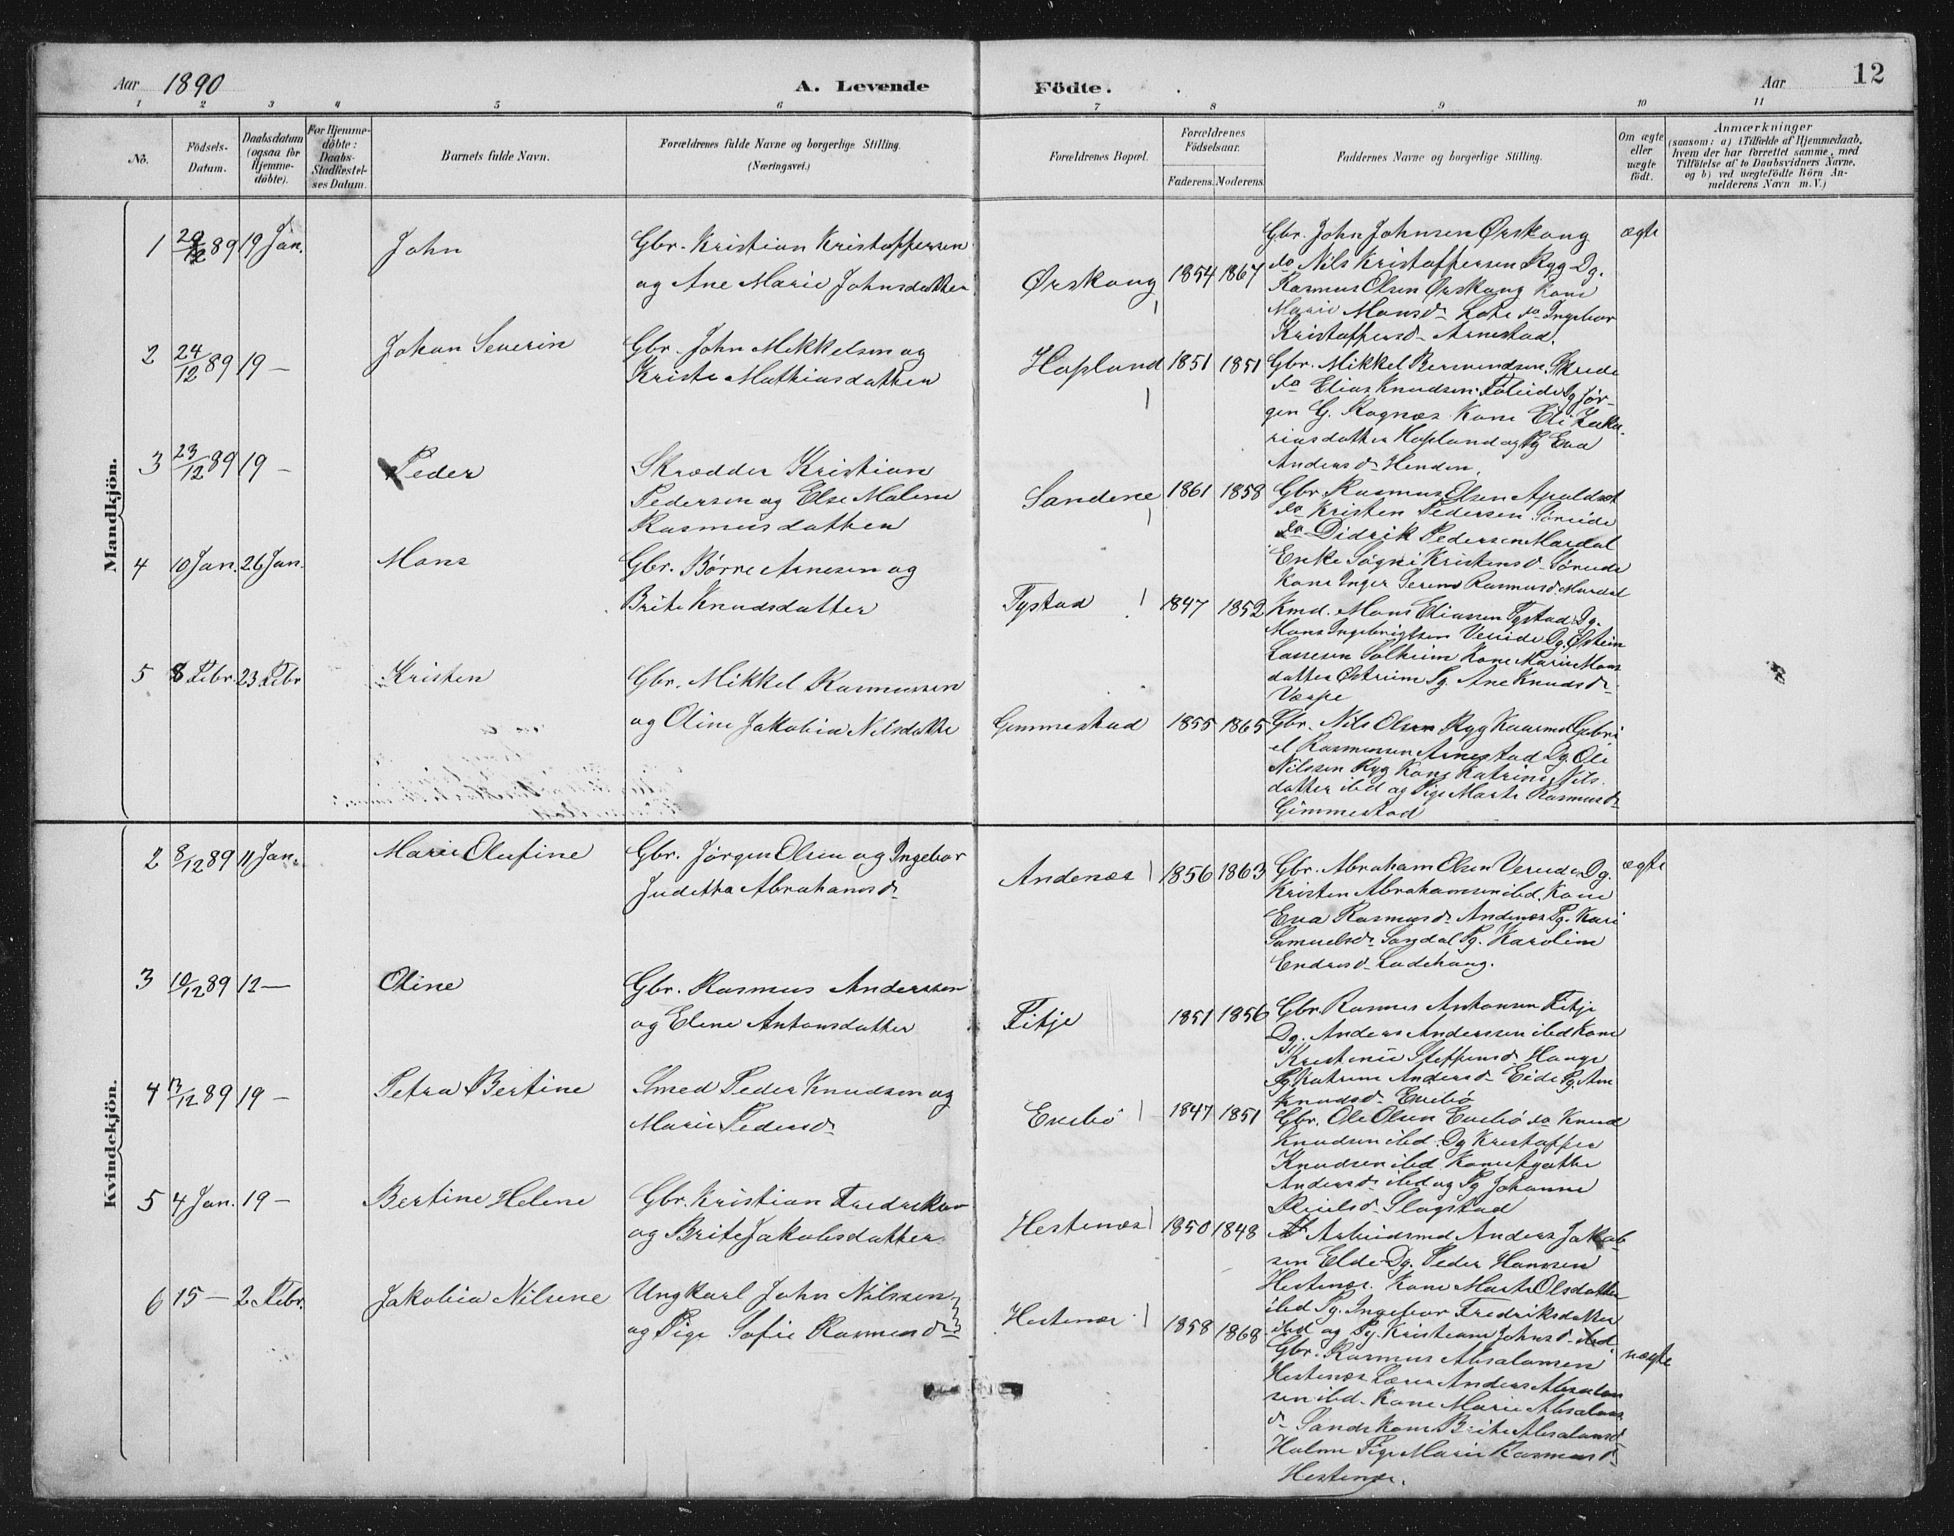 Aar 1890
A. Levende
Födte.
Aar
12
1 2 3 4 5 6 7 8 9 10 11
No.
Födsels-
Datum.
Daabsdatum
(ogsaa for
Hjemme-
döbte).
For Hjemme-
döbte:
Daabs-
Stadfæstel-
ses Datum.
Barnets fulde Navn.
Forældrenes fulde Navne og borgerlige Stilling.
(Næringsvei.)
Forældrenes Bopæl.
Forældrenes
Födselsaar.
Faderens. Moderens.
Faddernes Navne og borgerlige Stilling.
Om ægte
eller
uægte
födt.
Anmærkninger
(saasom: a) i Tilfælde af Hjemmedaab,
hvem der har forrettet samme, med
Tilföielse af to Daabsvidners Navne,
og b) ved uægtefödte Börn An-
melderens Navn m. V.)
Mandkjön.
1 29/12 89 19 Jan. John
Gbr. Kristian Kristoffersen
og Ane Marie Johnsdatter
Ørskoug 1854 1867
Gbr. John Johnsen Ørskoug
do Nils Kristoffersen Ryg Dg.
Rasmus Olsen Ørskoug Kone
Marie Monsd. Lote do Ingebor
Kristoffersd. Arnestad.
ægte
2 24/12 89 19 — Johan Severin
Gbr. John Mikkelsen og
Kristi Mathiasdatter
Hopland 1851 1851
Gbr. Mikkel Skrede
do Elias Knudsen Dg Jør-
gen G. Rognæs Kone Eli Zaka-
riasdatter Hopland og Pg Eva
Andersd. Henden.
3 23/12 89 19 — Peder
Skrædder Kristian
Pedersen og Else Malene
Rasmusdatter
Sandene 1861 1858
Gbr Rasmus Olsen Apaldset
do Kristen Pedersen
do Didrik Pedersen Mardal
Enke Søgni Kristensd.
Kone Inger Serine Rasmusd. Mardal
4 10 Jan. 26 Jan. Mons
Gbr. Børre Arnesen og
Brite Knudsdatter
Tystad 1847 1852
Kmd. Mons Eliassen Tystad Dg.
Mons Ingebrigtsen Vereide Dg. Østein
Lassesen Solheim Kone Marie Mons
datter Østreim Pg. Ane Knudsd.
5 8 Febr. 23 Febr Kristen
Gbr. Mikkel Rasmussen
og Oline Jakobia Nilsdatter
Gimmestad 1855 1865
Gbr. Nils Olsen Ryg Gabri
el Rasmussen Arnestad Dg. Ole
Nilssen Ryg Kone Katrine Nils
datter ibd og Pige Marte Rasmusd.
Gimmestad
Kvindekjön.
2 8/12 89 11 Jan. Marie Olufine
Gbr. Jørgen Olsen og Ingebor
Juditta Abrahamsd.
Andenæs 1856 1863
Gbr. Abraham Olsen Vereide Dg.
Kristen Abrahamsen ibd. Kone
Eva Rasmusd. Andenæs Pg. Kari
Samuelsd. Sandal Pg. Karoline
Endresd. Ladehaug.
ægte
3 10/12 89 12 — Oline
Gbr. Rasmus Anderssen
og Elene Antonsdatter
Fitje 1851 1856
Gbr Rasmus Antonsen Fitje
Dg. Anders Anderssen ibd Kone
Kristense Steffensd. Hauge
Pg Katrine Andersd. Eide Pg. Ane
Knudsd. Evebø
4 13/12 89 19 — Petra Bertine
Smed Peder Knudsen og
Marie Pedersd.
Evebø 1847 1851
Gbr. Ole Olsen Evebø do Knud
Knudsen ibd. Dg Kristoffer
Knudsen ibd Kone Agathe
Andersd. ibd og Pg Johanne
Slagstad
5 4 Jan. 19 — Bertine Helene
Gbr. Kristian Fredriksen
og Brite Jakobsdatter
Hestenæs 1850 1848
Arbeidsmd Anders Jakob-
sen Elde Dg. Peder Hanssen
Hestenæs. Kone Marte Olsdatter
ibd Pg. Ingebor Fredriksdatter
ibd og Pg. Kristiane Johnsd. ibd
6 15 — 2 Febr. Jakobia Nilsine
Ungkarl John Nilssen
og Pige Sofie Rasmusd.
Hestenæs 1858 1868
Gbr. Rasmus Absalonsen
Hestenæs Lærer Anders Absalon
sen ibd. Kone Marie Absalons
d. Sande Kone Brite Absalonsd.
Holme Pige Marie Rasmusd.
Hestenæs.
uægte